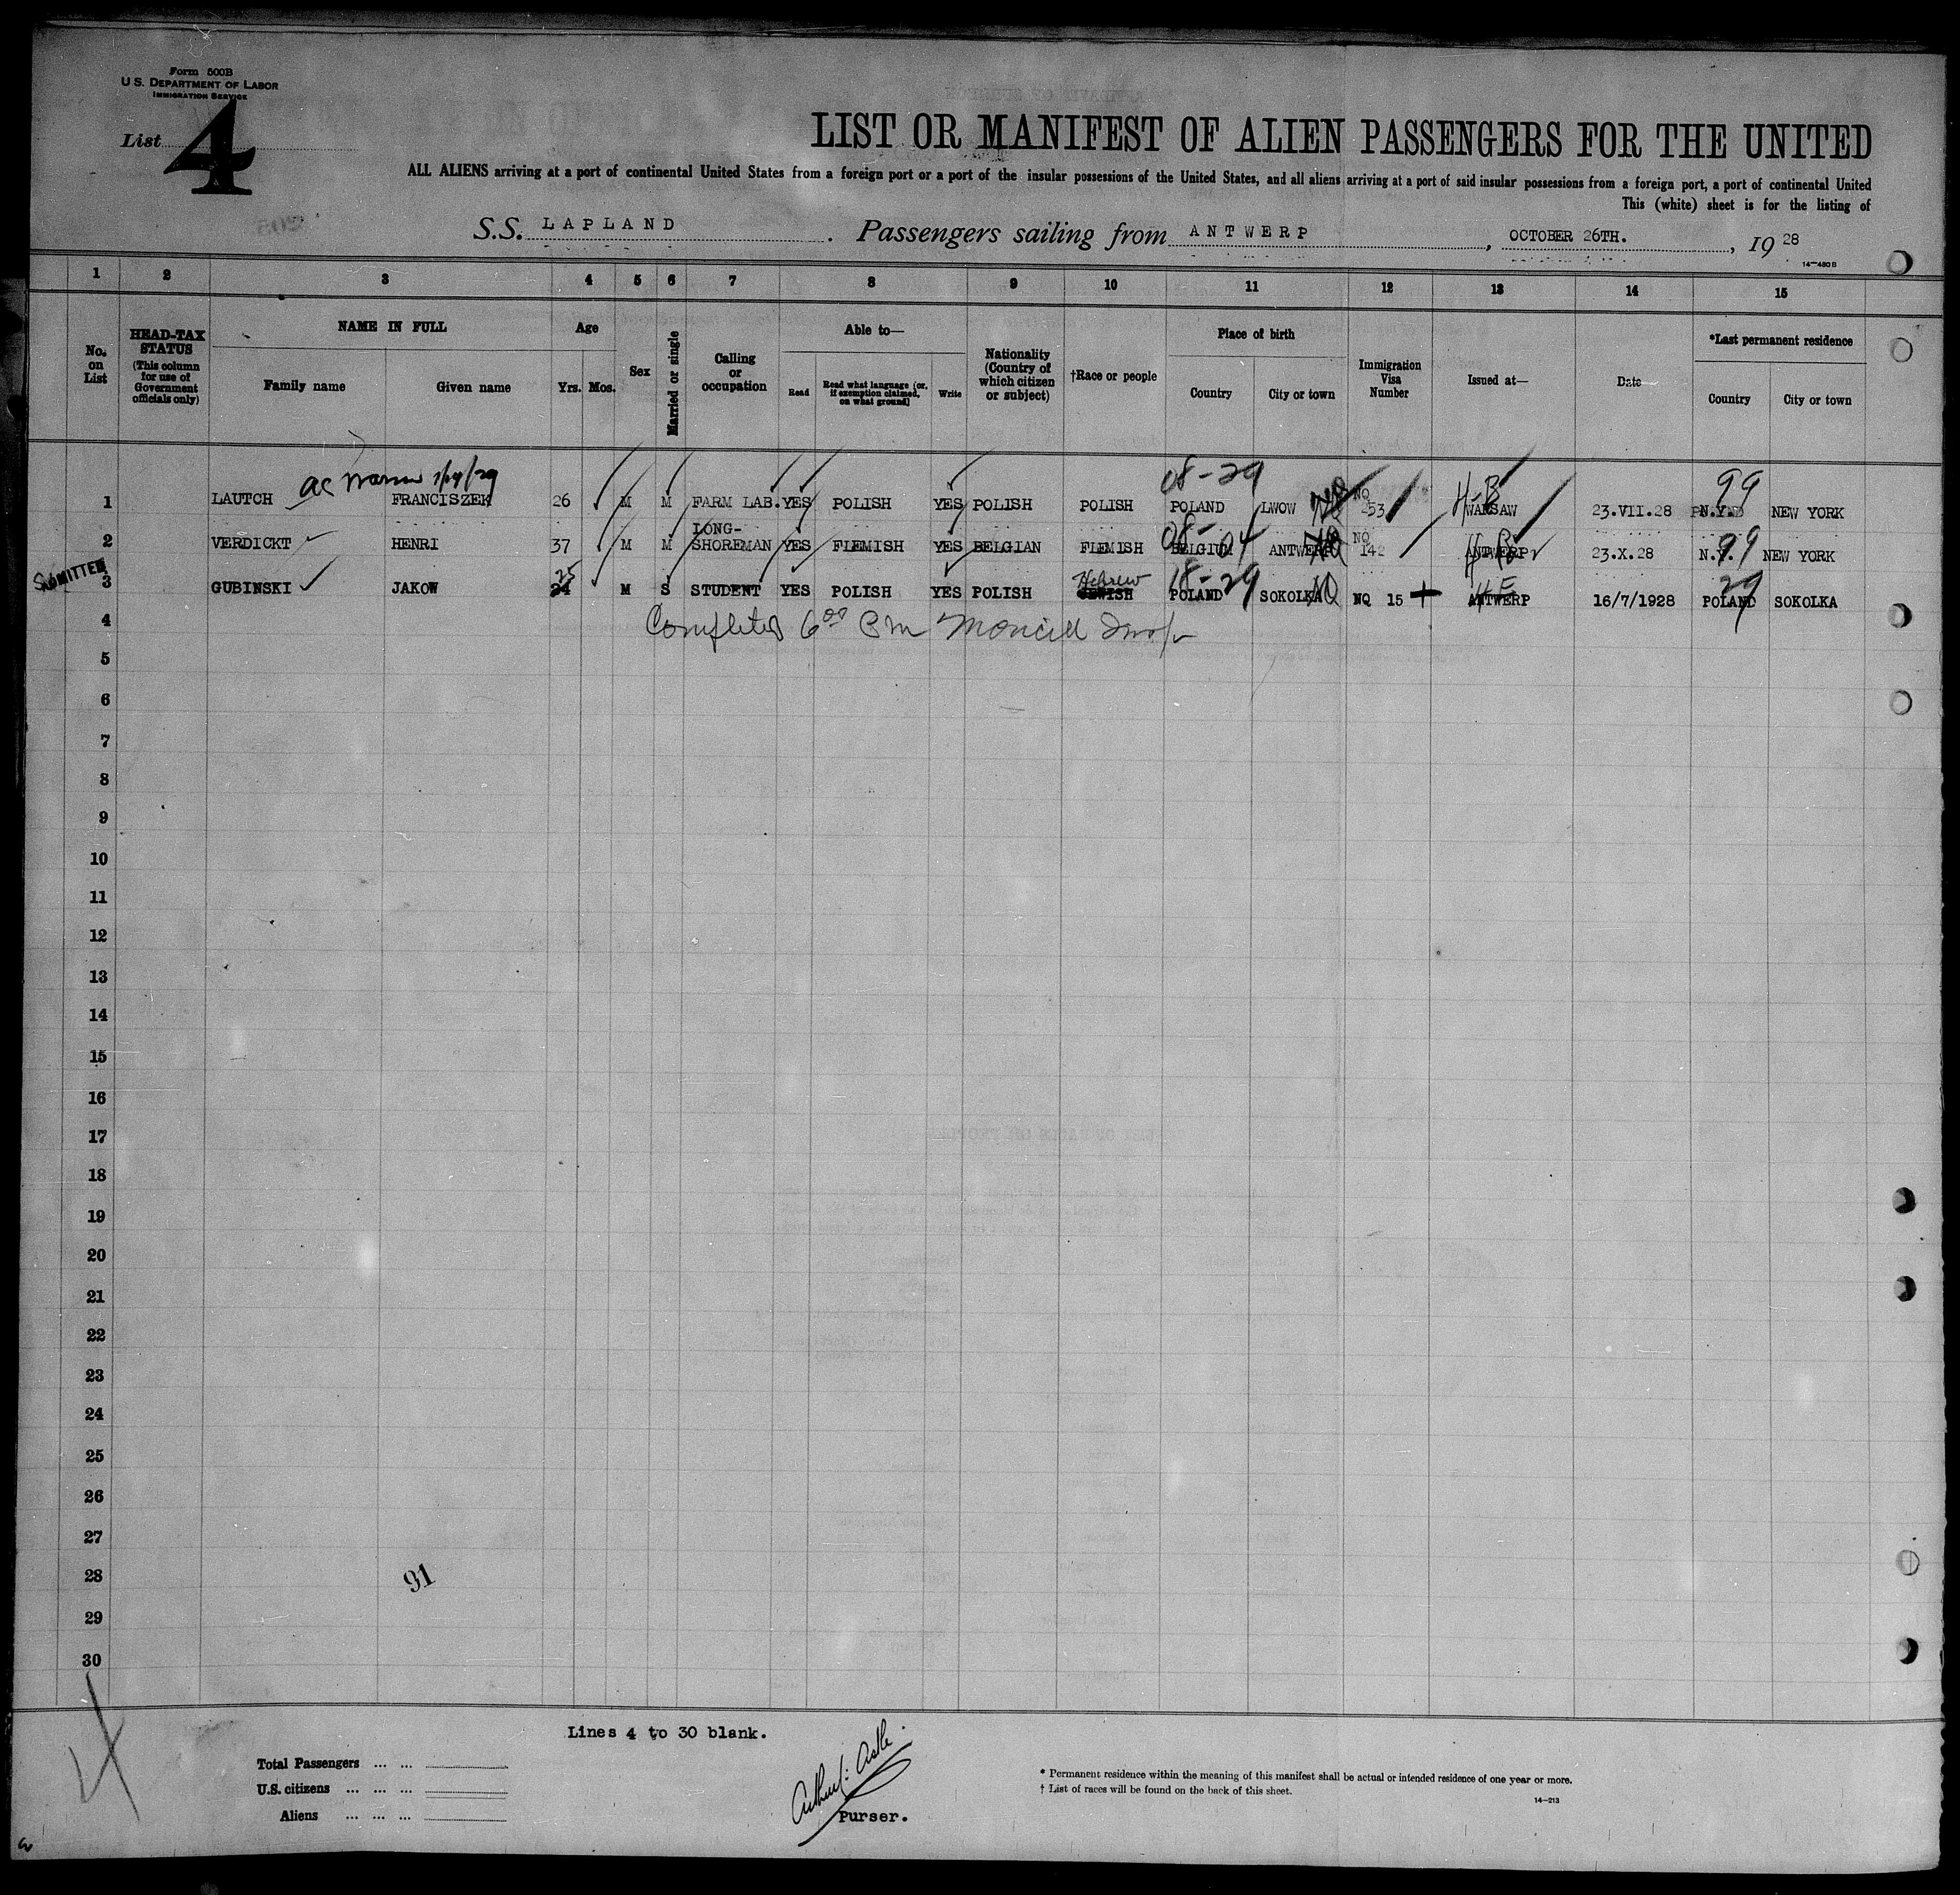 Form 500B
U.S. DEPARTMENT OF LABOR
IMMIGRATION SERVICE
List 4
LIST OR MANIFEST OF ALIEN PASSENGERS FOR THE UNITED
ALL ALIENS arriving at a port of continental United States from a foreign port or a port of the insular possessions of the United States, and all aliens arriving at a port of said insular possessions from a foreign port, a port of continental United
This (white) sheet is for the listing of
S.S. LAPLAND. Passengers sailing from ANTWERP, OCTOBER 26TH., 19 28
14-480B
1 2 3 4 5 6 7 8 9 10 11 12 13 14 15
No. on List
HEAD-TAX STATUS (This column for use of Government officials only)
NAME IN FULL
Family name
Given name
Age
Yrs. Mos.
Sex
Married or single
Calling or occupation
Able to—
Read
Read what language [or, if exemption claimed, on what ground]
Write
Nationality (Country of which citizen or subject)
†Race or people
Place of birth
Country
City or town
Immigration Visa Number
Issued at—
Date
*Last permanent residence
Country
City or town
08-29 H-B 99
1 LAUTCH FRANCISZEK 26 M M FARM LAB. YES POLISH YES POLISH POLISH POLAND LWOW NQ 253 WARSAW 23.VII.28 N.Y. NEW YORK
08-04 99
2 VERDICKT HENRI 37 M M LONG-SHOREMAN YES FLEMISH YES BELGIAN FLEMISH BELGIUM ANTWERP NQ 142 ANTWERP 23.X.28 N.Y. NEW YORK
ADMITTED
25 Hebrew 18-29 29
3 GUBINSKI JAKOW 24 M S STUDENT YES POLISH YES POLISH JEWISH POLAND SOKOLKA NQ 15 ANTWERP 16/7/1928 POLAND SOKOLKA
4
5
6
7
8
9
10
11
12
13
14
15
16
17
18
19
20
21
22
23
24
25
26
27
28
91
29
30
Lines 4 to 30 blank.
Total Passengers ... ...
U.S. citizens ... ... ...
Aliens ... ... ...
Purser.
* Permanent residence within the meaning of this manifest shall be actual or intended residence of one year or more.
† List of races will be found on the back of this sheet.
14-213